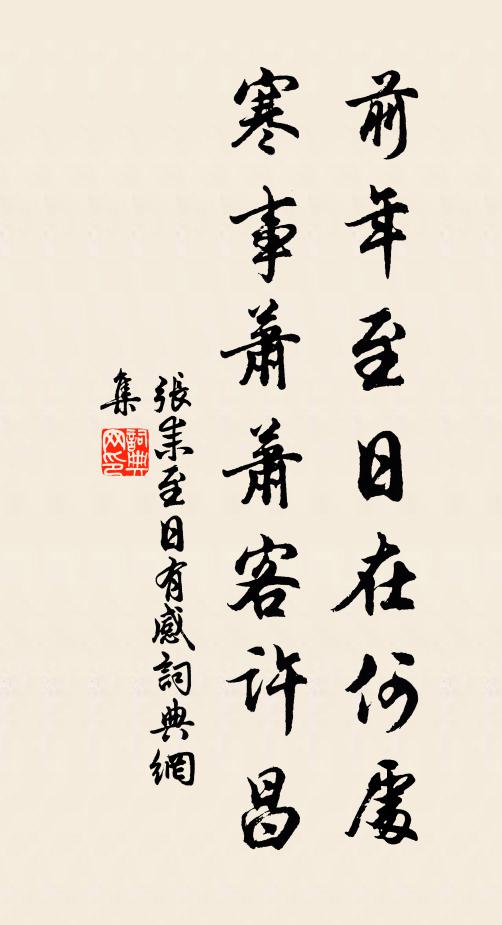 前年至日在何處
寒事蕭蕭客許昌
張耒至日有感詞典網
集
詞典网印